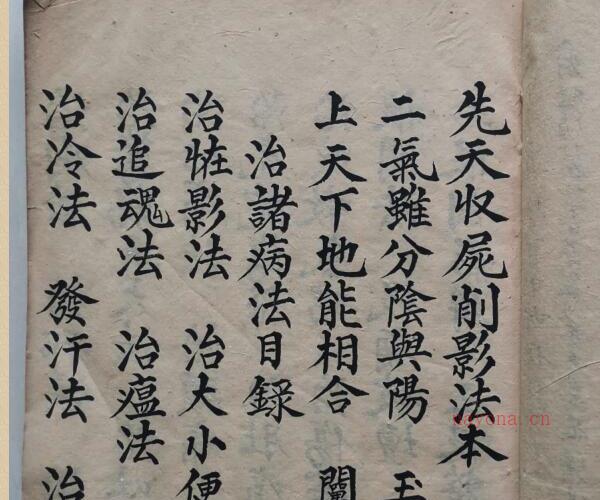 先天收屍削影法本
二氣雖分陰與陽 玉
上天下地能相合 闡
治諸病法目錄
治恠影法 治大小便
治追魂法 治瘟法
治冷法 發汗法 治
xayona.cn